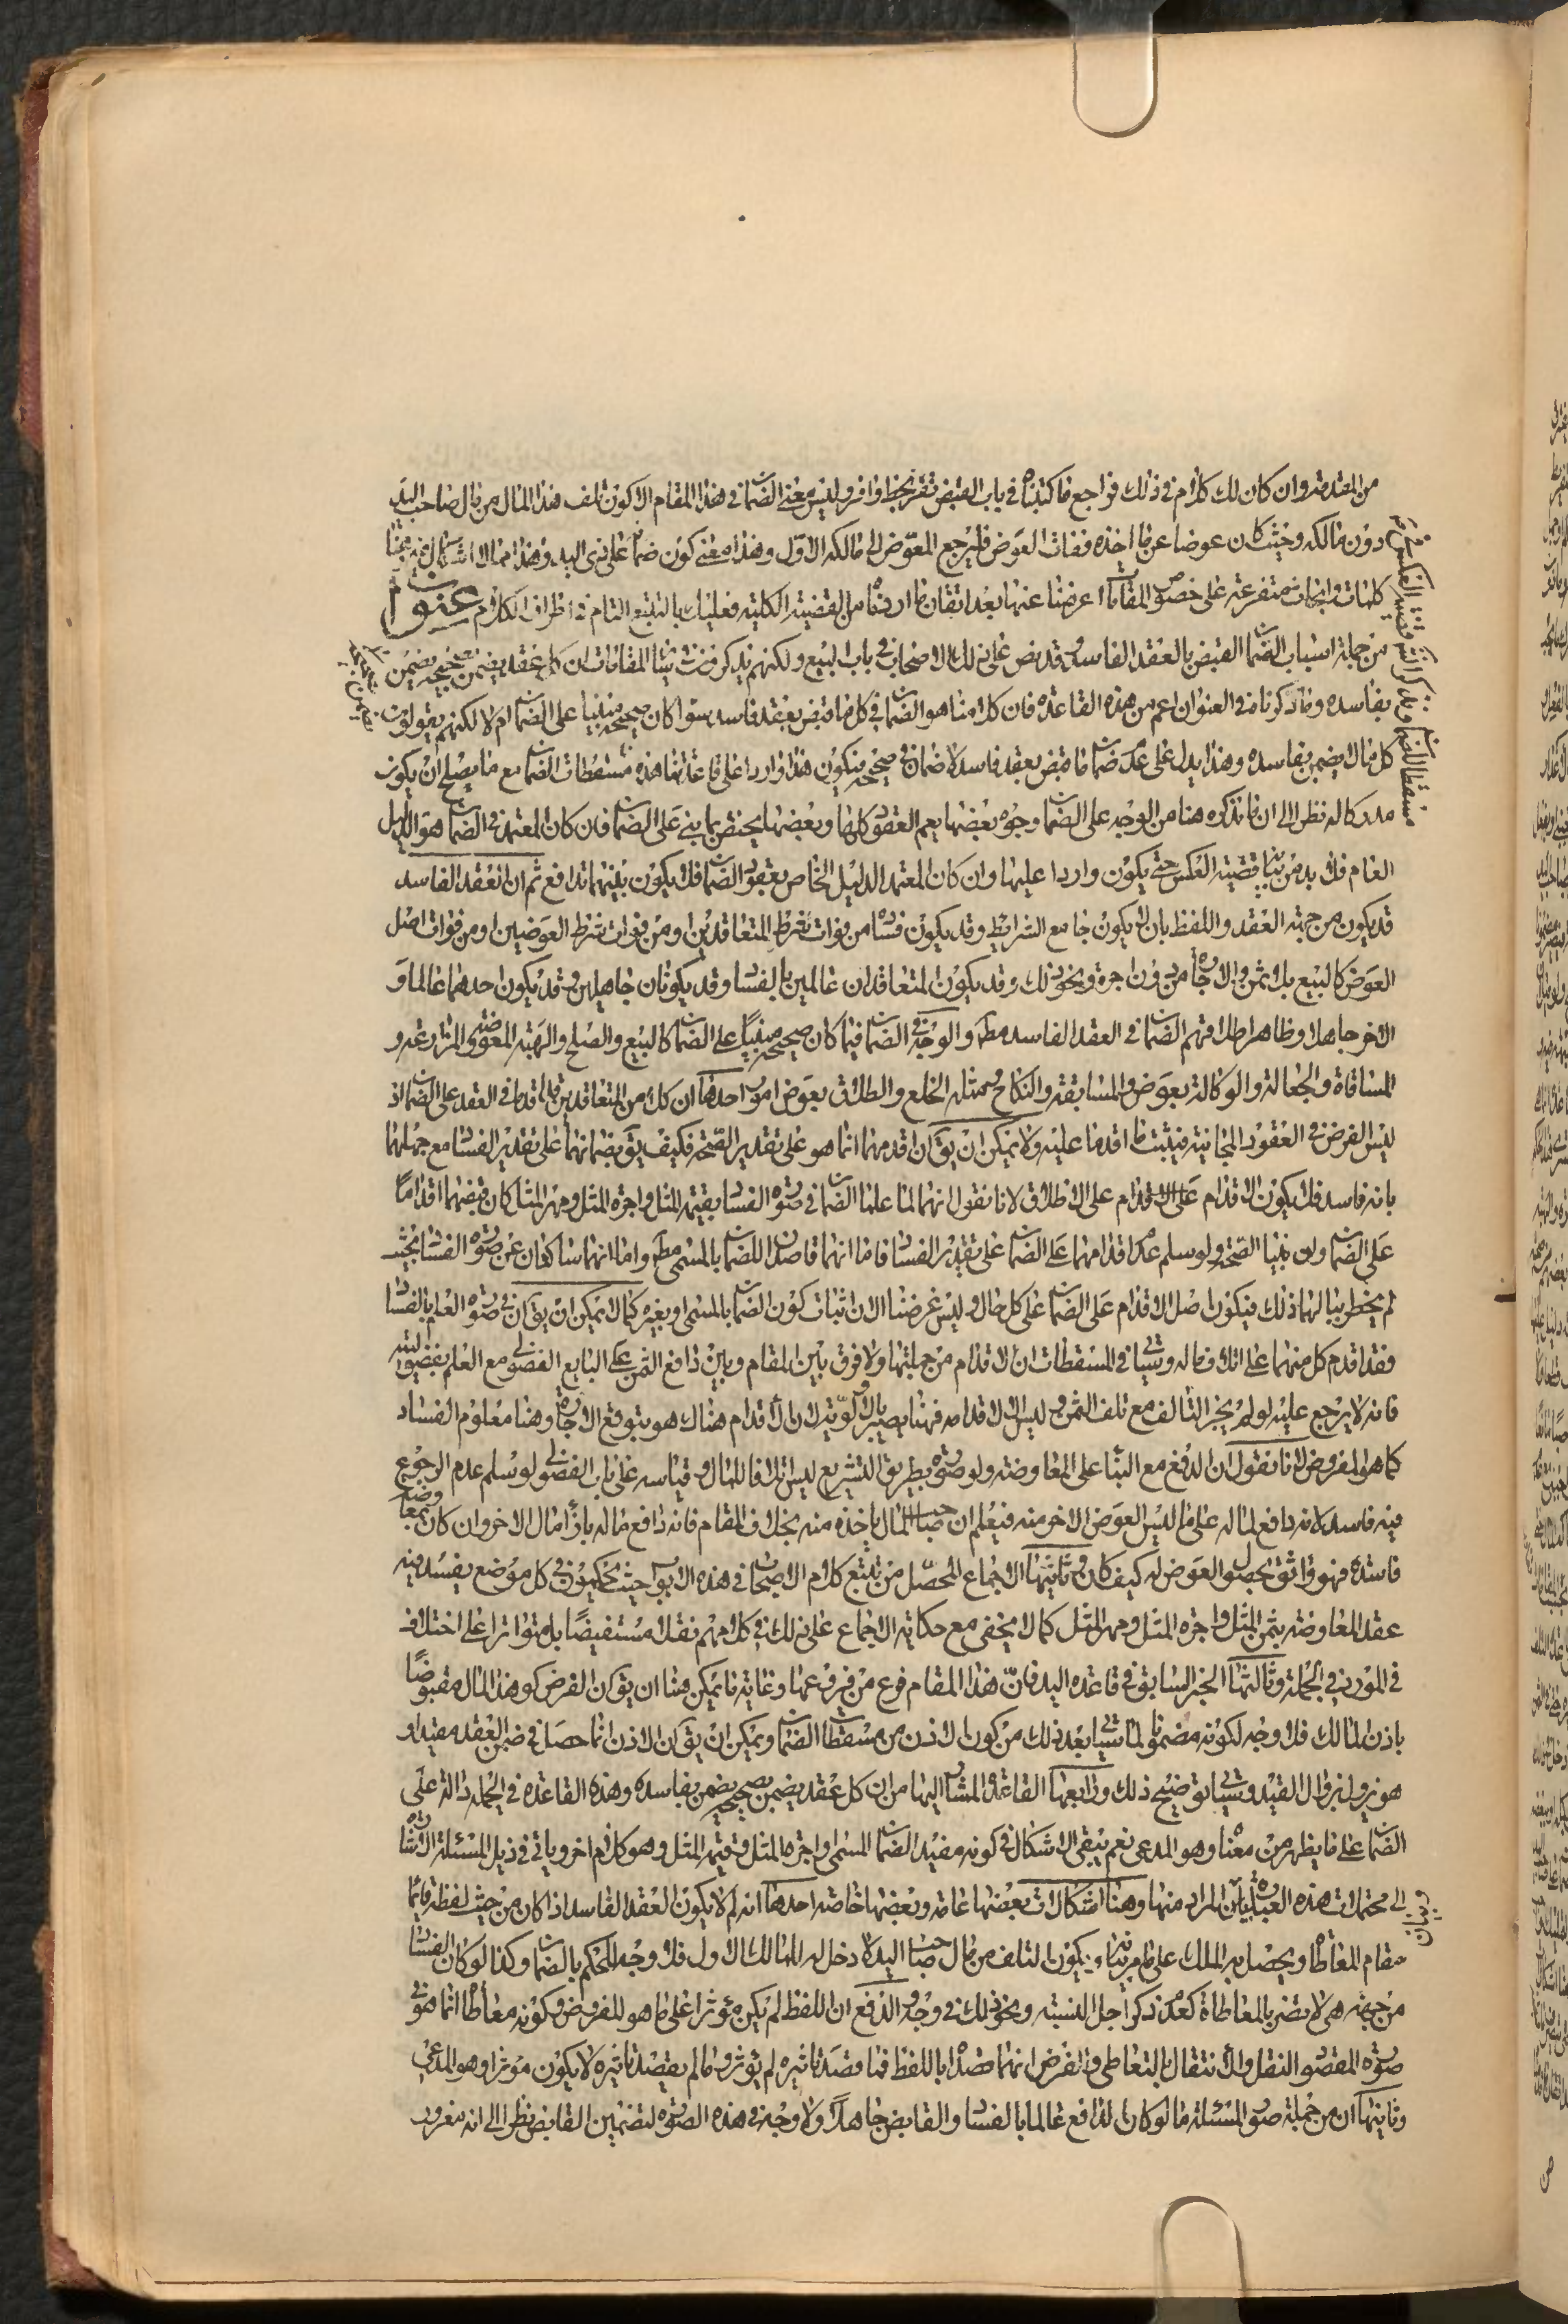 من المقدمة وان كان لك كلام في ذلك فراجع ما كتبناه في باب القبض تفز بحظ وافر وليس معنى الضمان في هذا المقام الا كون تلف هذا المال من مال صاحب اليد
دون مالكه وحيث كان عوضا عن ما اخذه ففات العوض فليرجع المعوض الى مالكه الاول وهذا معنى كون ضمانه على ذي اليد وهذا مما لا اشكال فيه وهنا
كلمات وابحاث متفرعة على خصوص المقامات اعرضنا عنها بعد اتقان ما اردناه من القضية الكلية فعليك بالتتبع التام في اطراف الكلام عنوان
من جملة اسباب الضمان القبض بالعقد الفاسد وقد نص على ذلك الاصحاب في باب البيع ولكنهم يذكرون في هذا المقامات ان كل عقد يضمن بصحيحه يضمن
بفاسده وما ذكرناه في العنوان اعم من هذه القاعدة فان كلامنا هو الضمان في كل ما قبض بعقد فاسد سواء كان صحيحه مبنيا على الضمان ام لا لكنهم يقولون
كل ما لا يضمن بصحيحه لا يضمن بفاسده وهذا يدل على عدم ضمان ما قبض بعقد فاسد لا ضمان في صحيحه فيكون هذا واردا على قاعدتنا هذه مسقطات الضمان مع ما يصلح ان يكون
مدركا له نظرا الى ان ما نذكره هنا من الوجه على الضمان وجوه بعضها يعم العقود كلها وبعضها يختص بما بني على الضمان فان كان المعتمد في الضمان هو الدليل
العام فلا بد من بيان قضية العكس حتى يكون واردا عليها وان كان المعتمد الدليل الخاص بعقود الضمان فلا يكون بينهما تدافع ثم ان العقد الفاسد
قد يكون من جهة العقد واللفظ بان لا يكون جامع الشرايط وقد يكون فساده من فوات شرط المتعاقدين او من فوات شرط العوضين او من فوات اصل
العوض كالبيع بلا ثمن والاجارة من دون اجرة ونحو ذلك وقد يكون المتعاقدان عالمين بالفساد وقد يكونان جاهلين وقد يكون احدهما عالما و
الاخر جاهلا وظاهر اطلاقهم الضمان في العقد الفاسد مطلقا والوجه في الضمان فيما كان صحيحه مبنيا على الضمان كالبيع والصلح والهبة المعوضة والمزارعة و
المساقاة والجعالة والوكالة بعوض والمسابقة والنكاح ومثله الخلع والطلاق بعوض امور احدها ان كلا من المتعاقدين قد اقدما في العقد على الضمان اذ
ليس الفرض في العقود المجانية فيثبت ما اقدما عليه ولا يمكن ان يق ان اقدامهما انما هو على تقدير الصحة فكيف يق بضمانهما على تقدير الفساد مع جهلهما
بانه فاسد فلا يكون الاقدام على الاقدام على الاطلاق لانا نقول انهما لما علما الضمان في صورة الفساد بقيمة المثل واجرة المثل ومهر المثل كان قبضهما اقداما
على الضمان وان بنيا الصحة ولو سلم عدم اقدامهما على الضمان على تقدير الفساد فاما انهما قاصدان للضمان بالمسمى مط واما انهما ساكتان عن صورة الفساد بحيث
لم يخطر ببالهما ذلك فيكون اصل الاقدام على الضمان على كل حال وليس غرضنا الان اثبات كون الضمان بالمسمى او بغيره كما لا يمكن ان يق ان في صورة العلم بالفساد
فقد اقدم كل منهما على اتلاف ماله وسيأتي في المسقطات ان الاقدام من جملتها ولا فرق بين المقام وبين دافع الثمن على البايع الفضولي مع العلم بفضوليته
فانه لا يرجع عليه لو لم يجز المالك مع تلف الثمن وليس الا لاقدامه فهنا يصير بالاولوية لان الاقدام هناك هو بتوقع الاجازة وهنا معلوم الفساد
كما هو المفروض لانا نقول ان الدفع مع البناء على المعاوضة ولو صورة بطريق التشريع ليس اتلافا للمال وقياسه على باب الفضولي لو سلم عدم الرجوع
فيه فاسد لانه دافع لماله على ما ليس العوض الاخر منه فيعلم ان صاحب المال ياخذه منه بخلاف المقام فانه دافع ماله بازاء مال الاخر وان كان بمعاوضة
فاسدة فهو واثق بحصول العوض له كيف كان وثانيها الاجماع المحصل من تتبع كلام الاصحاب في هذه الابواب حيث يحكمون في كل موضع يفسد فيه
عقد المعاوضة بثمن المثل واجرة المثل ومهر المثل كما لا يخفى مع حكاية الاجماع على ذلك في كلامهم نقلا مستفيضا بل متواترا على اختلاف
في الموارد في الجملة وثالثها الخبر السابق في قاعدة اليد فان هذا المقام فرع من فروعها وغاية ما يمكن هنا ان يق ان الفرض كون هذا المال مقبوضا
باذن المالك فلا وجه لكونه مضمونا لما سيأتي بعد ذلك من كون الاذن من مسقطات الضمان ويمكن ان يق ان الاذن انما حصل في ضمن العقد مقيدا و
هو يزول بزوال القيد وسيأتي توضيح ذلك ورابعها القاعدة المشار اليها من ان كل عقد يضمن بصحيحه يضمن بفاسده وهذه القاعدة في الجملة دالة على
الضمان على ما يظهر من معناه وهو المدعى نعم يبقى الاشكال في كونه مفيد الضمان المسمى او اجرة المثل وقيمة المثل وهو كلام اخر وياتي في ذيل المسئلة الاشارة
الى محتملات هذه العبارة وبيان المراد منها وهنا اشكالات بعضها عامة وبعضها خاصة احدها انه لم لا يكون العقد الفاسد اذا كان من حيث لفظه قائما
مقام المعاطاة ويحصل به الملك على ما مر بيانه ويكون التلف من مال صاحب اليد لا دخل له للمالك الاول فلا وجه للحكم بالضمان وكذا لو كان الفساد
من جهة هي لا يضر بالمعاطاة كعدم ذكر اجل النسية ونحو ذلك في وجه والدفع ان اللفظ لم يكن مؤثرا على ما هو المفروض وكونه معاطاة انما هو في
صورة المقصود النقل والانتقال بالتعاطي والفرض انهما قصدا باللفظ فما قصد تاثيره لم يؤثر وما لم يقصد تاثيره لا يكون مؤثرا وهو المدعى
وثانيها ان من جملة صور المسئلة ما لو كان الدافع عالما بالفساد والقابض جاهلا ولا وجه في هذه الصورة لتضمين القابض نظرا الى انه مغرور